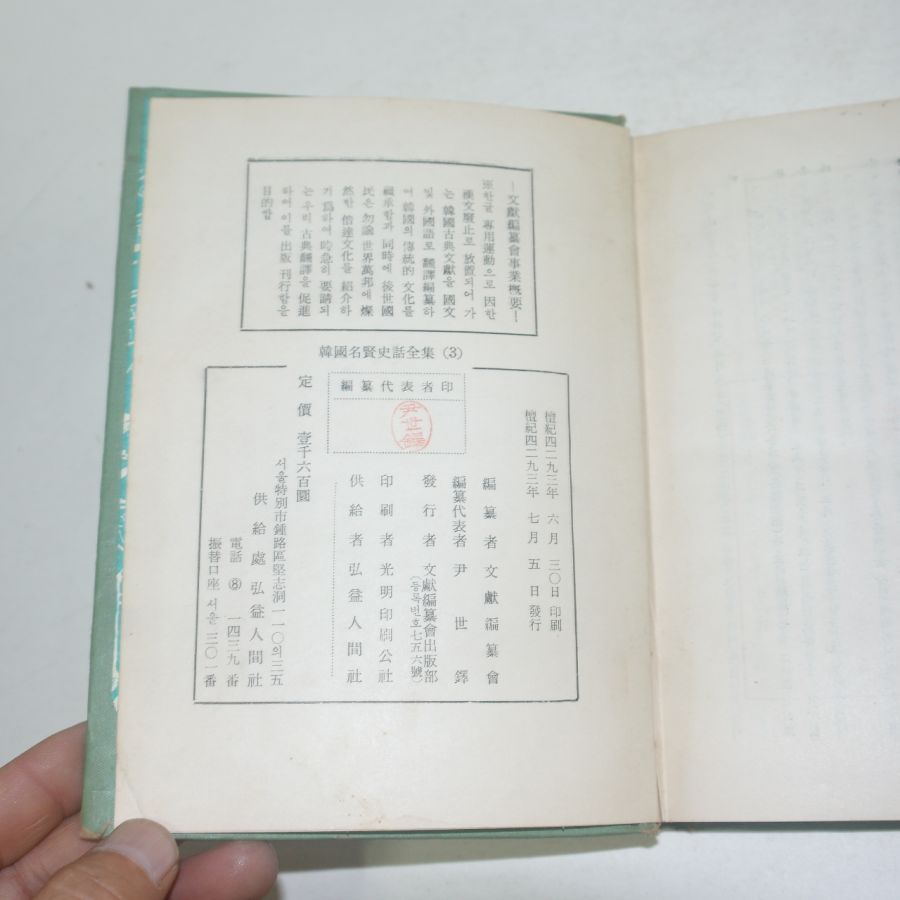 —文獻編纂會事業槪要—
※한글 專用運動으로 因한
漢文廢止로 放置되어 가
는 韓國古典文獻을 國文
및 外國語로 飜譯編纂하
여 韓國의 傳統的 文化를
繼承함과 同時에 後世國
民은 勿論 世界萬邦에 燦
然한 倍達文化를 紹介하
기 爲하여 時急히 要請되
는 우리 古典飜譯을 促進
하여 이를 出版 刊行함을
目的함
韓國名賢史話全集 (3)
檀紀四二九三年 六月 三〇日 印刷
檀紀四二九三年 七月 五日 發行
編纂代表者印
尹世鐸
編纂者 文獻編纂會
編纂代表者 尹世鐸
發行者 文獻編纂會出版部
(등록번호 七五六號)
印刷者 光明印刷公社
供給者 弘益人間社
定價 壹千六百圜
서울特別市鍾路區堅志洞一一〇의三五
供給處 弘益人間社
電話 ⑧ 一四三九番
振替口座 서울 三〇一番